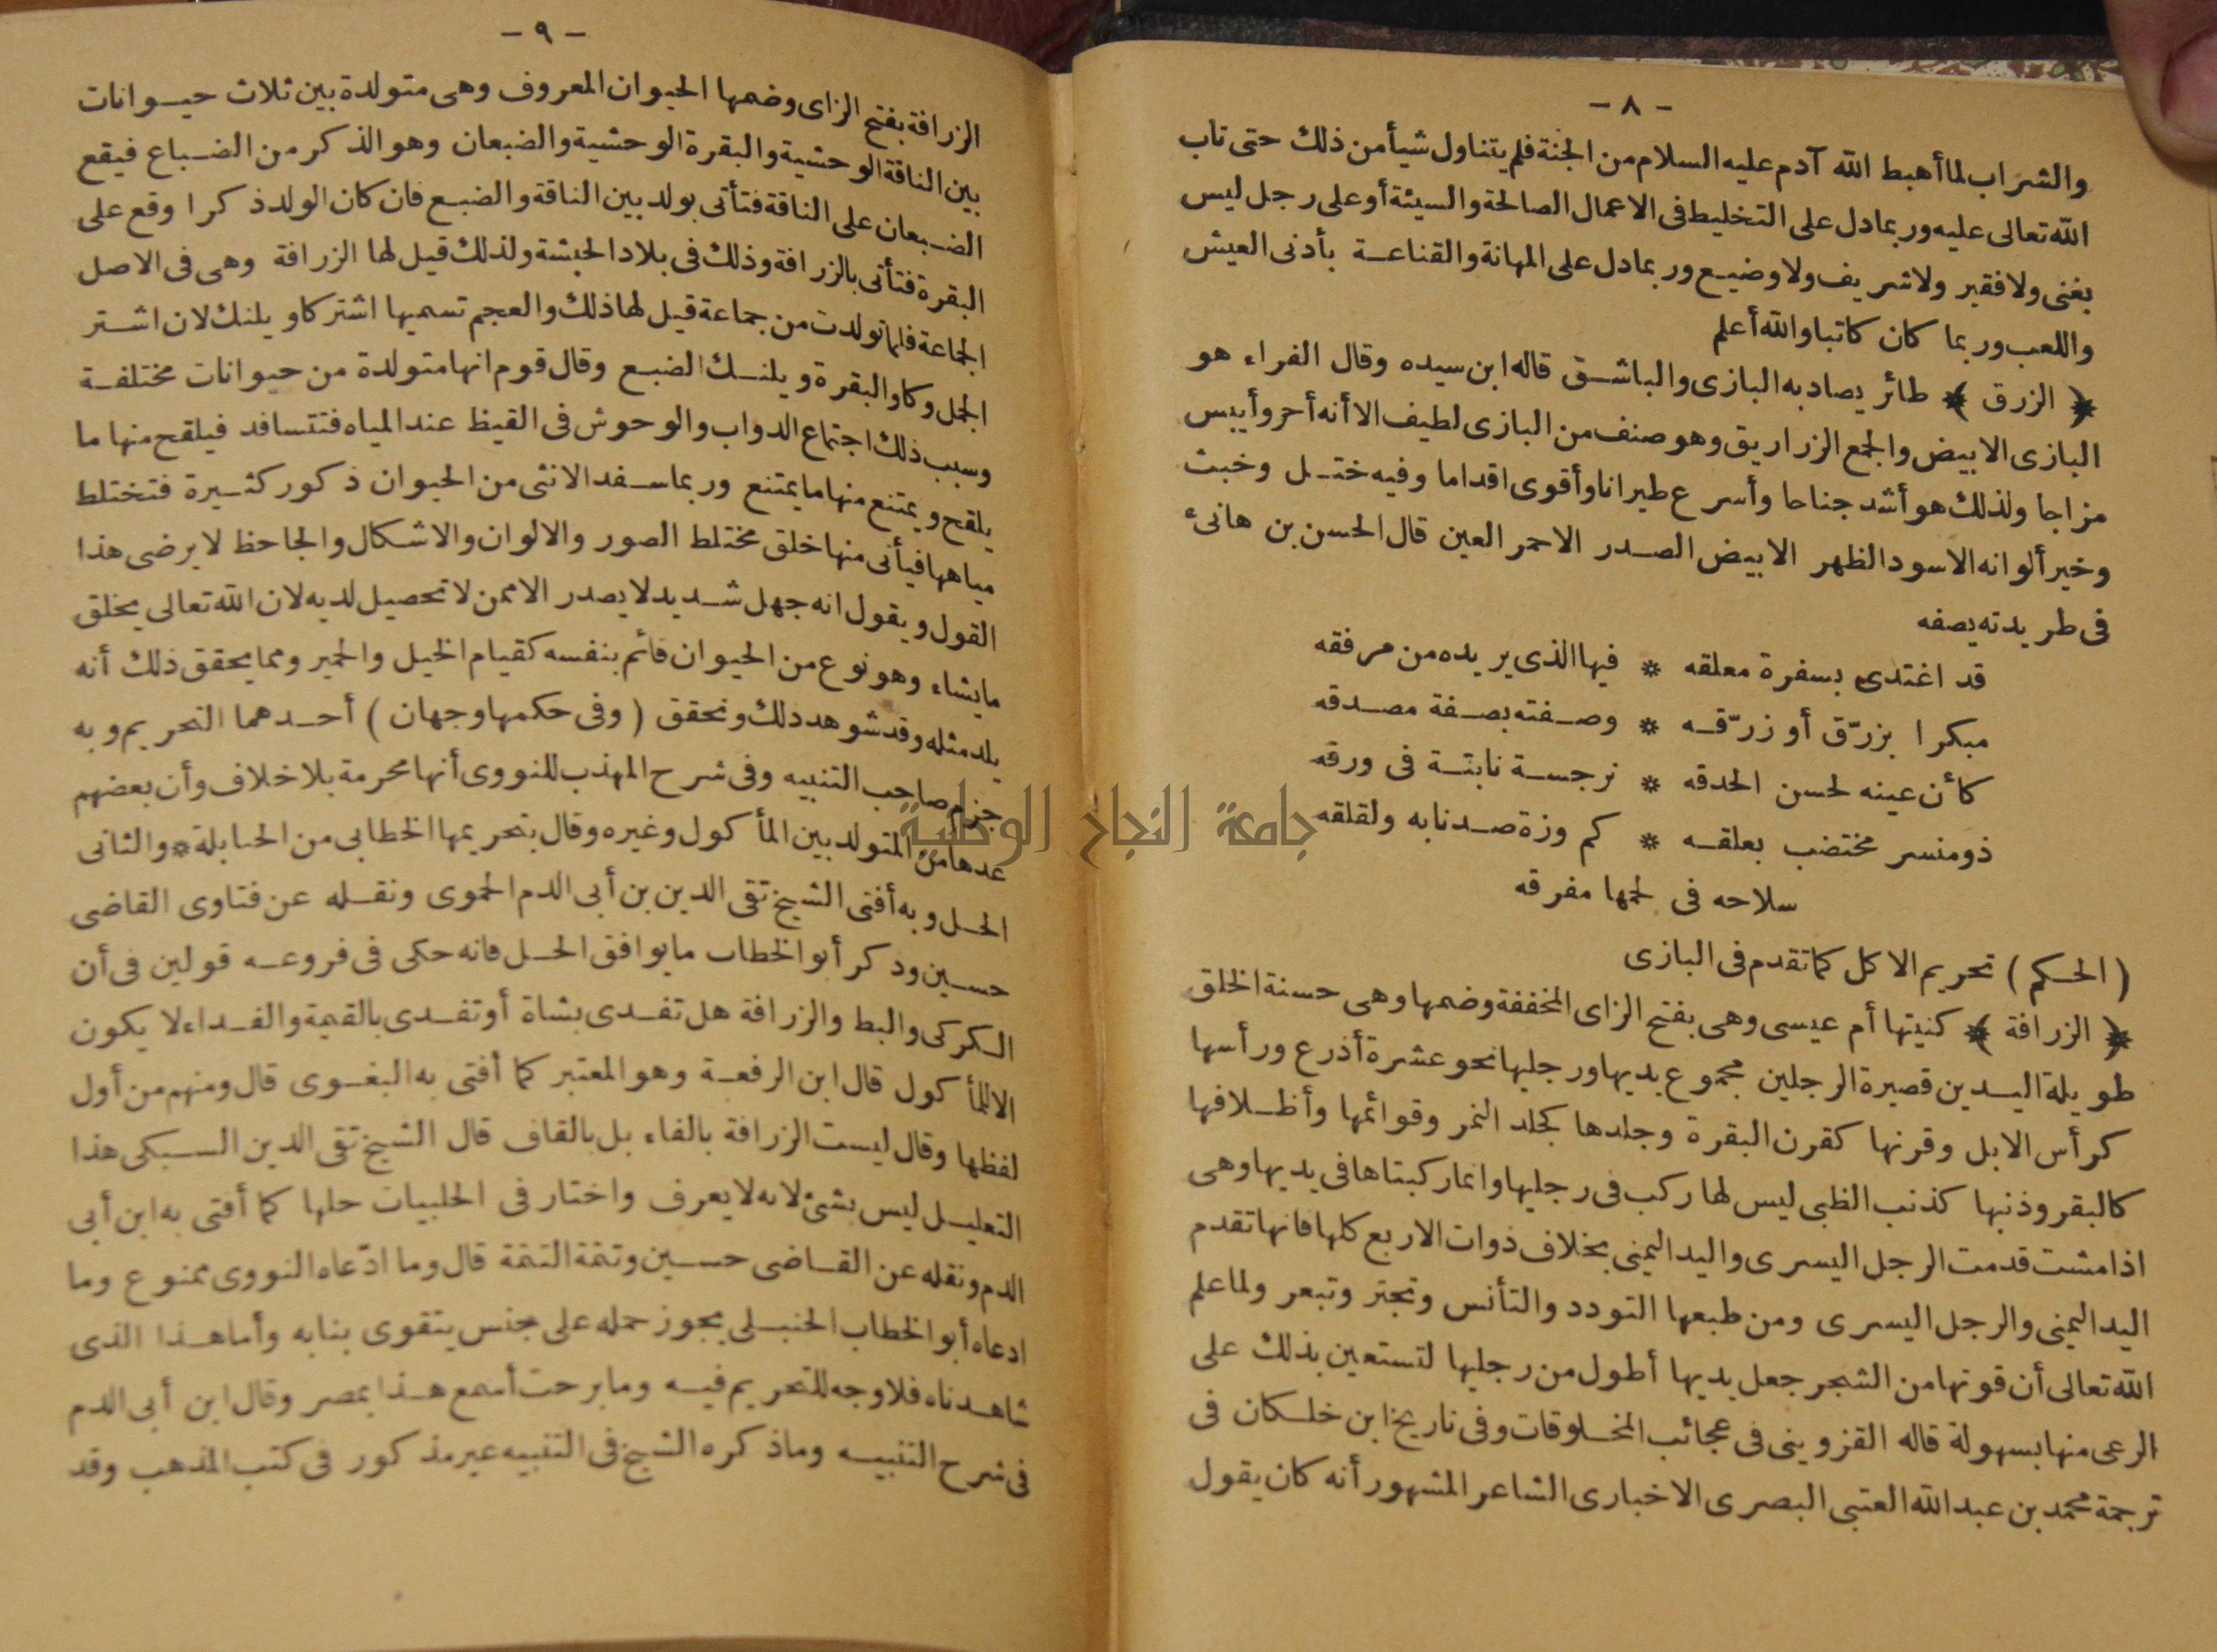 - ٨ -
والشراب لما أهبط الله آدم عليه السلام من الجنة فلم يتناول شيأ من ذلك حتى تاب
الله تعالى عليه وربما دل على التخليط فى الاعمال الصالحة والسيئة أو على رجل ليس
بغنى ولا فقير ولا شريف ولا وضيع وربما دل على المهانة والقناعة بأدنى العيش
واللعب وربما كان كاتبا والله أعلم
﴿ الزرق ﴾ طائر يصاد به البازى والباشق قاله ابن سيده وقال الفراء هو
البازى الابيض والجمع الزراريق وهو صنف من البازى لطيف الا أنه أحر وأيبس
مزاجا ولذلك هو أشد جناحا وأسرع طيرانا وأقوى اقداما وفيه ختل وخبث
وخير ألوانه الاسود الظهر الابيض الصدر الاحمر العين قال الحسن بن هانىء
فى طريدته يصفه
قد اغتدى بسفرة معلقه * فيها الذى يريده من مرفقه
مبكرا بزرّق أو زرّقه * وصفته بصفة مصدقه
كأن عينه لحسن الحدقه * نرجسة نابتة فى ورقه
ذو منسر مختضب بعلقه * كم وزة صدنا به ولقلقه
سلاحه فى لحمها مفرقه
( الحكم ) تحريم الاكل كما تقدم فى البازى
﴿ الزرافة ﴾ كنيتها أم عيسى وهى بفتح الزاى المخففة وضمها وهى حسنة الخلق
طويلة اليدين قصيرة الرجلين مجموع يديها ورجليها نحو عشرة أذرع ورأسها
كرأس الابل وقرنها كقرن البقرة وجلدها كجلد النمر وقوائمها وأظلافها
كالبقر وذنبها كذنب الظبى ليس لها ركب فى رجليها وانما ركبتاها فى يديها وهى
اذا مشت قدمت الرجل اليسرى واليد اليمنى بخلاف ذوات الاربع كلها فانها تقدم
اليد اليمنى والرجل اليسرى ومن طبعها التودد والتأنس وتجتر وتبعر ولما علم
الله تعالى أن قوتها من الشجر جعل يديها أطول من رجليها لتستعين بذلك على
الرعى منها بسهولة قاله القزوينى فى عجائب المخلوقات وفى تاريخ ابن خلكان فى
ترجمة محمد بن عبد الله العتبى البصرى الاخبارى الشاعر المشهور أنه كان يقول
- ٩ -
الزرافة بفتح الزاى وضمها الحيوان المعروف وهى متولدة بين ثلاث حيوانات
بين الناقة الوحشية والبقرة الوحشية والضبعان وهو الذكر من الضباع فيقع
الضبعان على الناقة فتأتى بولد بين الناقة والضبع فان كان الولد ذكرا وقع على
البقرة فتأتى بالزرافة وذلك فى بلاد الحبشة ولذلك قيل لها الزرافة وهى فى الاصل
الجماعة فلما تولدت من جماعة قيل لها ذلك والعجم تسميها اشتركاو يلنك لان اشتر
الجمل وكاو البقرة ويلنك الضبع وقال قوم انها متولدة من حيوانات مختلفة
وسبب ذلك اجتماع الدواب والوحوش فى القيظ عند المياه فتتسافد فيلقح منها ما
يلقح ويمتنع منها ما يمتنع وربما سفد الانثى من الحيوان ذكور كثيرة فتختلط
مياهها فيأتى منها خلق مختلط الصور والالوان والاشكال والجاحظ لا يرضى هذا
القول ويقول انه جهل شديد لا يصدر الا ممن لا تحصيل لديه لان الله تعالى يخلق
ما يشاء وهو نوع من الحيوان قائم بنفسه كقيام الخيل والحمير ومما يحقق ذلك أنه
يلد مثله وقد شوهد ذلك وتحقق ( وفى حكمها وجهان ) أحدهما التحريم وبه
جزم صاحب التنبيه وفى شرح المهذب للنووى أنها محرمة بلا خلاف وأن بعضهم
عدها من المتولد بين المأكول وغيره وقال بتحريمها الخطابى من الحنابلة * والثانى
الحل وبه أفتى الشيخ تقى الدين بن أبى الدم الحموى ونقله عن فتاوى القاضى
حسين وذكر أبو الخطاب ما يوافق الحل فانه حكى فى فروعه قولين فى أن
الكركى والبط والزرافة هل تفدى بشاة أو تفدى بالقيمة والفداء لا يكون
الا للمأكول قال ابن الرفعة وهو المعتبر كما أفتى به البغوى قال ومنهم من أول
لفظها وقال ليست الزرافة بالفاء بل بالقاف قال الشيخ تقى الدين السبكى هذا
التعليل ليس بشئ لانه لا يعرف واختار فى الحلبيات حلها كما أفتى به ابن أبى
الدم ونقله عن القاضى حسين وتتمة التتمة قال وما ادّعاه النووى ممنوع وما
ادعاه أبو الخطاب الحنبلى يجوز حمله على جنس يتقوى بنابه وأما هذا الذى
شاهدناه فلا وجه للتحريم فيه وما برحت أسمع هذا بمصر وقال ابن أبى الدم
فى شرح التنبيه وما ذكره الشيخ فى التنبيه غير مذكور فى كتب المذهب وقد
جامعة النجاح الوطنية